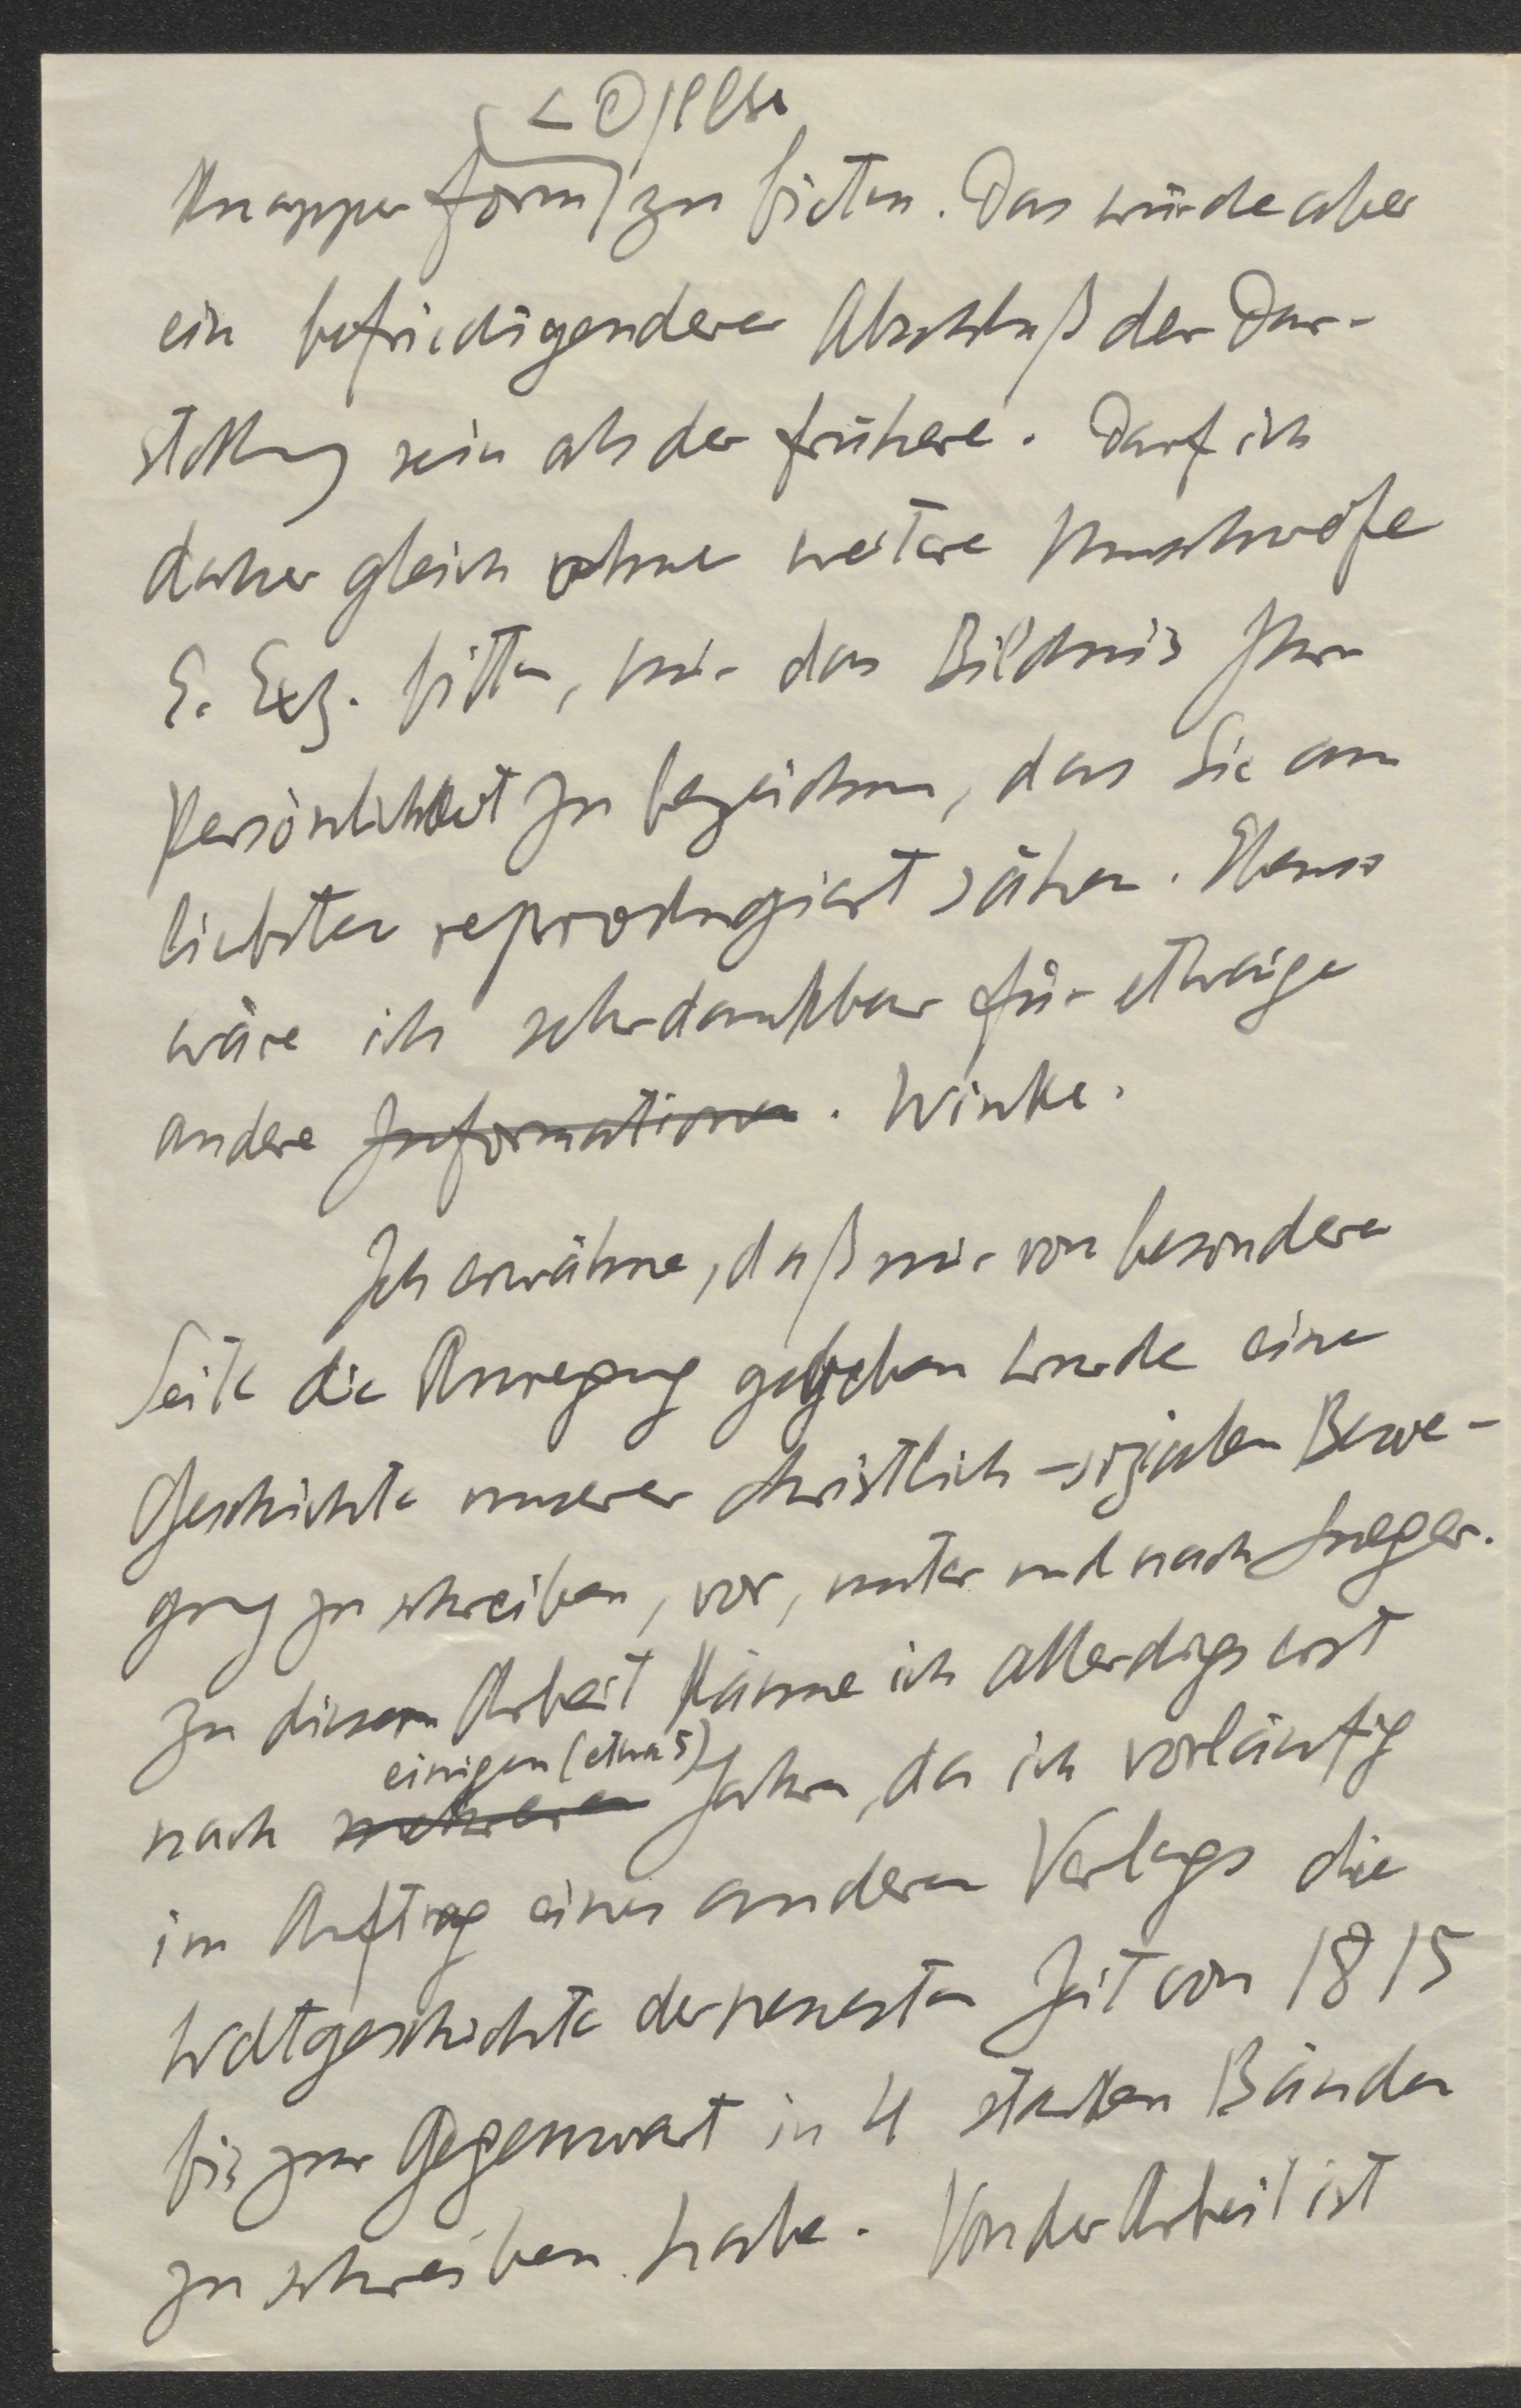 knapper Form) zu bieten. Das würde aber
ein befriedigenderer Abschluß der Dar-
stellung sein als der frühere. Darf ich
daher gleich ohne weitere Umschweife
E. Exz. bitten, mir das Bildnis Ihrer
Persönlichkeit zu bezeichnen, das Sie am
liebsten reproduziert sähen. Ebenso
wäre ich sehr dankbar für etwaige
andere Informationen. Winke.
Ich erwähne, daß mir von besonderer
Seite die Anregung gegeben wurde eine
Geschichte unserer christlich-sozialen Bewe-
gung zu schreiben, vor, unter und nach Lueger.
Zu dieser Arbeit käme ich allerdings erst
einigen (etwa 5)
nach mehreren Jahren, da ich vorläufig
im Auftrag eines anderen Verlags die
Weltgeschichte der neuesten Zeit von 1815
bis zur Gegenwart in 4 starken Bänden
zu schreiben habe. Von der Arbeit ist